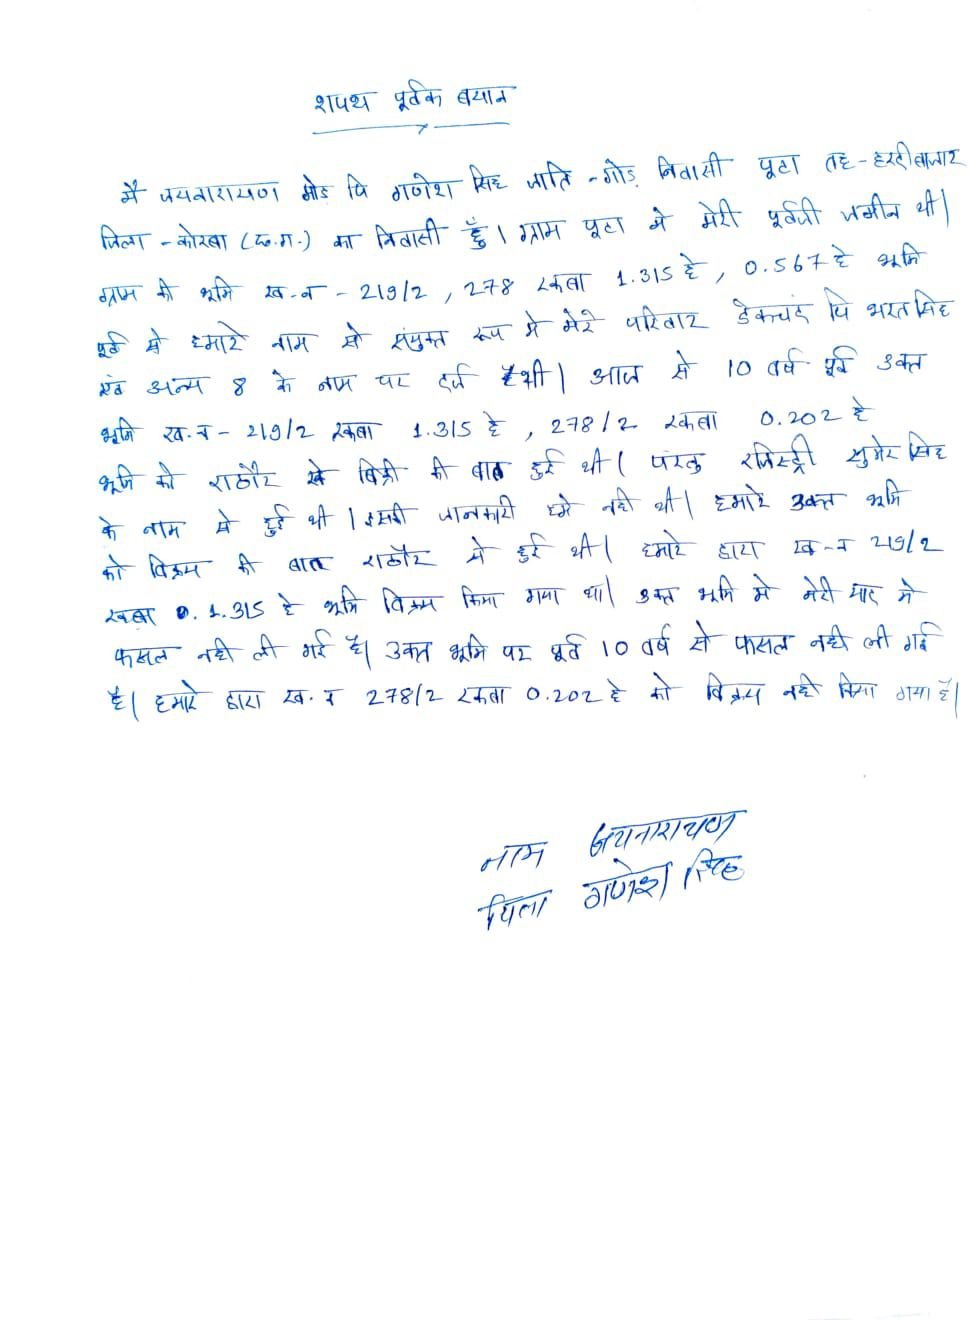 शपथ पूर्वक बयान
मैं जयनारायण गोड़ पि गणेश सिंह जाति - गोड़ निवासी पूटा तह - हरदीबाजार
जिला - कोरबा (छ.ग.) का निवासी हूँ। ग्राम पूटा मे मेरी पूर्वजी जमीन थी।
ग्राम की भूमि ख.न - 219/2, 278 रकबा 1.315 हे, 0.567 हे भूमि
पूर्व से हमारे नाम से संयुक्त रूप मे मेरे परिवार टेकचंद पि भरत सिंह
एवं अन्य 8 के नाम पर दर्ज थी। आज से 10 वर्ष पूर्व उक्त
भूमि ख.न - 219/2 रकबा 1.315 हे, 278/2 रकबा 0.202 हे
भूमि को राठौर से बिक्री की बात हुई थी। परंतु रजिस्ट्री सुमेर सिंह
के नाम से हुई थी। इसकी जानकारी हमे नही थी। हमारे उक्त भूमि
को विक्रय की बात राठौर से हुई थी। हमारे द्वारा ख.न 219/2
रकबा 1.315 हे भूमि विक्रय किया गया था। उक्त भूमि मे मेरी याद मे
फसल नही ली गई है। उक्त भूमि पर पूर्व 10 वर्ष से फसल नही ली गई
है। हमारे द्वारा ख.न 278/2 रकबा 0.202 हे को विक्रय नही किया गया है।
नाम जयनारायण
पिता गणेश सिंह